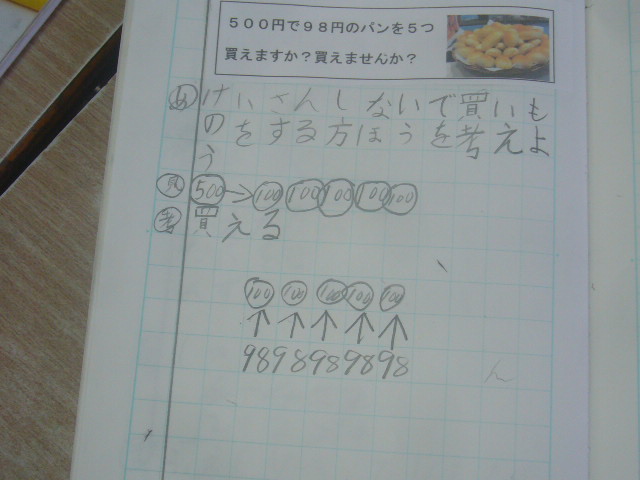 ５００円で９８円のパンを５つ
買えますか？買えませんか？
め けいさんしないで買いも
のをする方ほうを考えよ
う
見 500→100 100 100 100 100
考 買える
100 100 100 100 100
↑ ↑ ↑ ↑ ↑
98 98 98 98 98
ん